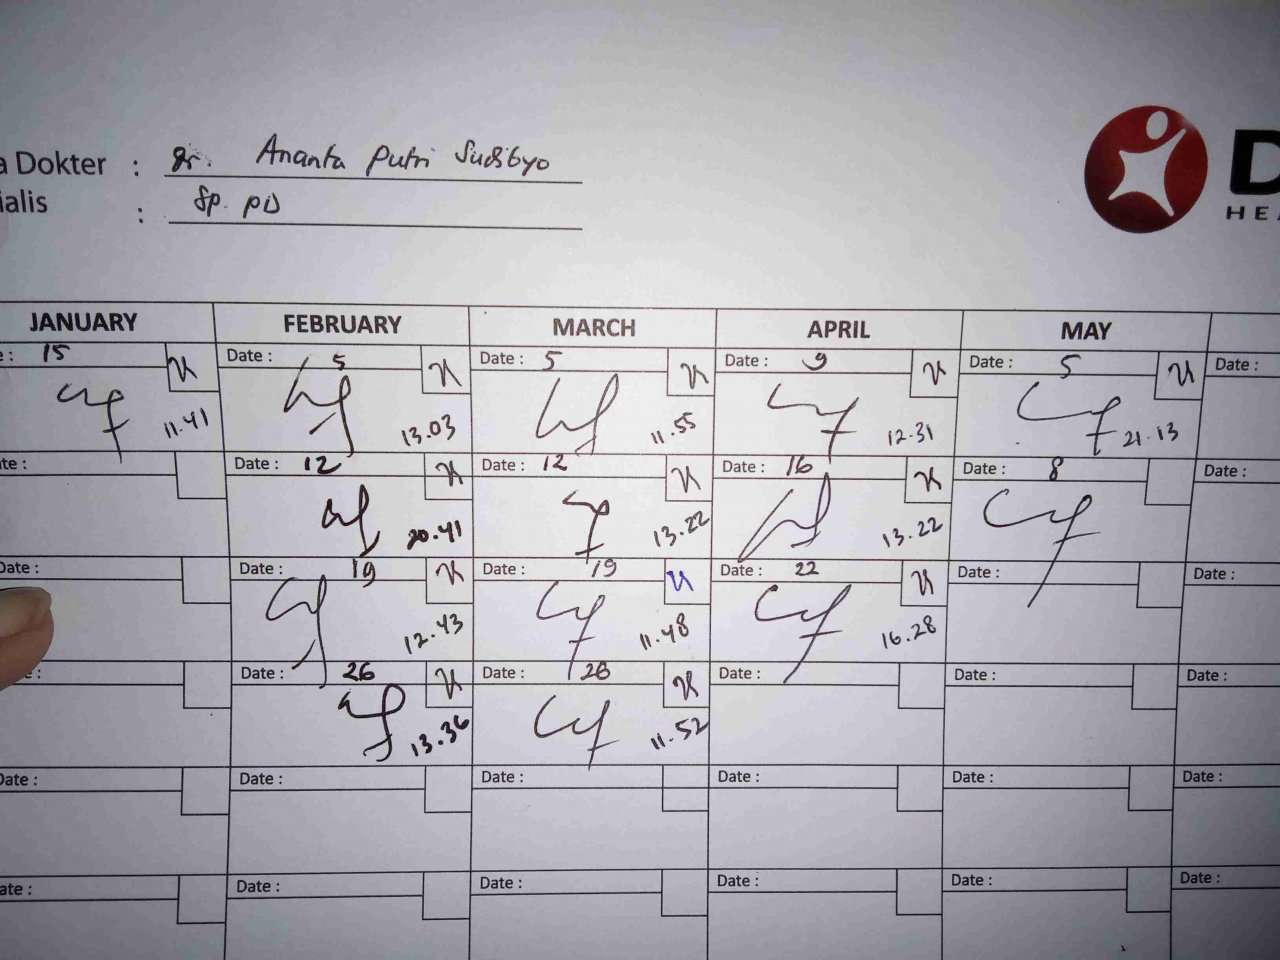 a Dokter : dr. Ananta Putri Sudibyo
ialis : Sp. PD
D
HEA
JANUARY FEBRUARY MARCH APRIL MAY
e : 15 Date : 5 Date : 5 Date : 9 Date : 5 Date :
11.41 13.03 11.55 12.31 21.13
ate : Date : 12 Date : 12 Date : 16 Date : 8 Date :
20.41 13.22 13.22
Date : Date : 19 Date : 19 Date : 22 Date : Date :
12.43 11.48 16.28
e : Date : 26 Date : 26 Date : Date : Date :
13.36 11.52
Date : Date : Date : Date : Date : Date :
ate : Date : Date : Date : Date : Date :